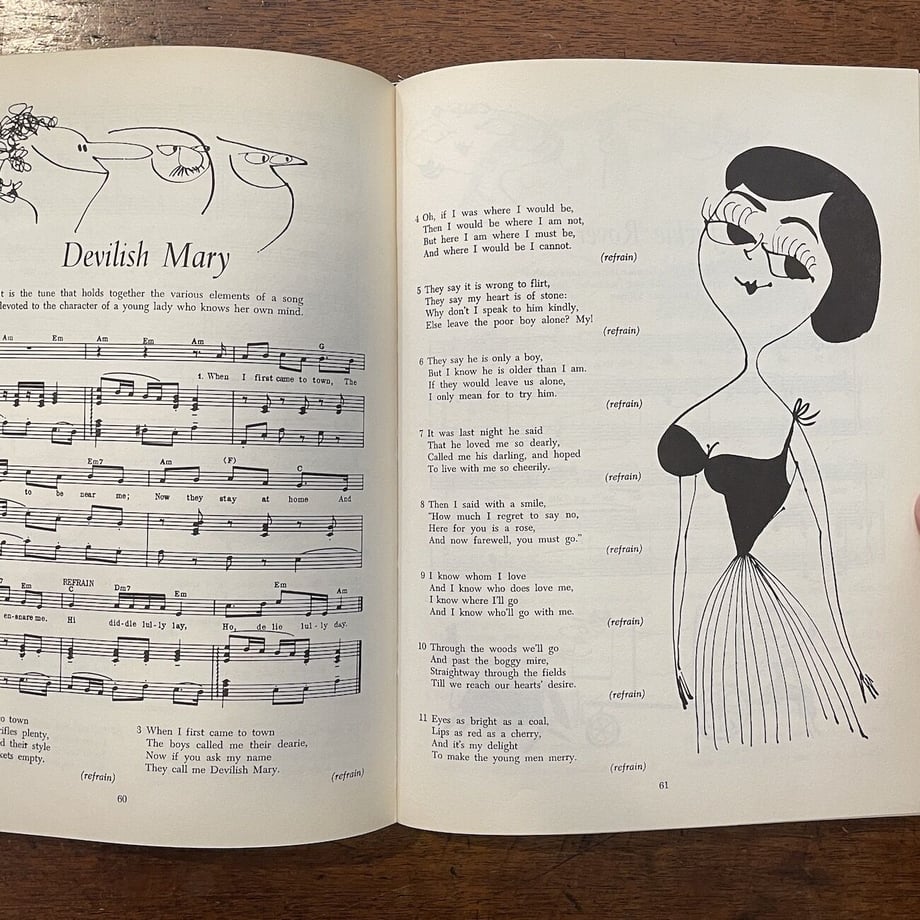 Devilish Mary
t is the tune that holds together the various elements of a song
devoted to the character of a young lady who knows her own mind.
Am Em Am Em Am G
1. When I first came to town, The
Em7 Am (F) C
to be near me; Now they stay at home And
7 Em REFRAIN C Dm7 Em Em Am
en-snare me. Hi did-dle lul-ly lay, Ho, de lie lul-ly day.
o town
rifles plenty,
d their style
kets empty.
(refrain)
3 When I first came to town
The boys called me their dearie,
Now if you ask my name
They call me Devilish Mary.
(refrain)
60
4 Oh, if I was where I would be,
Then I would be where I am not,
But here I am where I must be,
And where I would be I cannot.
(refrain)
5 They say it is wrong to flirt,
They say my heart is of stone:
Why don't I speak to him kindly,
Else leave the poor boy alone? My!
(refrain)
6 They say he is only a boy,
But I know he is older than I am.
If they would leave us alone,
I only mean for to try him.
(refrain)
7 It was last night he said
That he loved me so dearly,
Called me his darling, and hoped
To live with me so cheerily.
(refrain)
8 Then I said with a smile,
"How much I regret to say no,
Here for you is a rose,
And now farewell, you must go."
(refrain)
9 I know whom I love
And I know who does love me,
I know where I'll go
And I know who'll go with me.
(refrain)
10 Through the woods we'll go
And past the boggy mire,
Straightway through the fields
Till we reach our hearts' desire.
(refrain)
11 Eyes as bright as a coal,
Lips as red as a cherry,
And it's my delight
To make the young men merry.
(refrain)
61